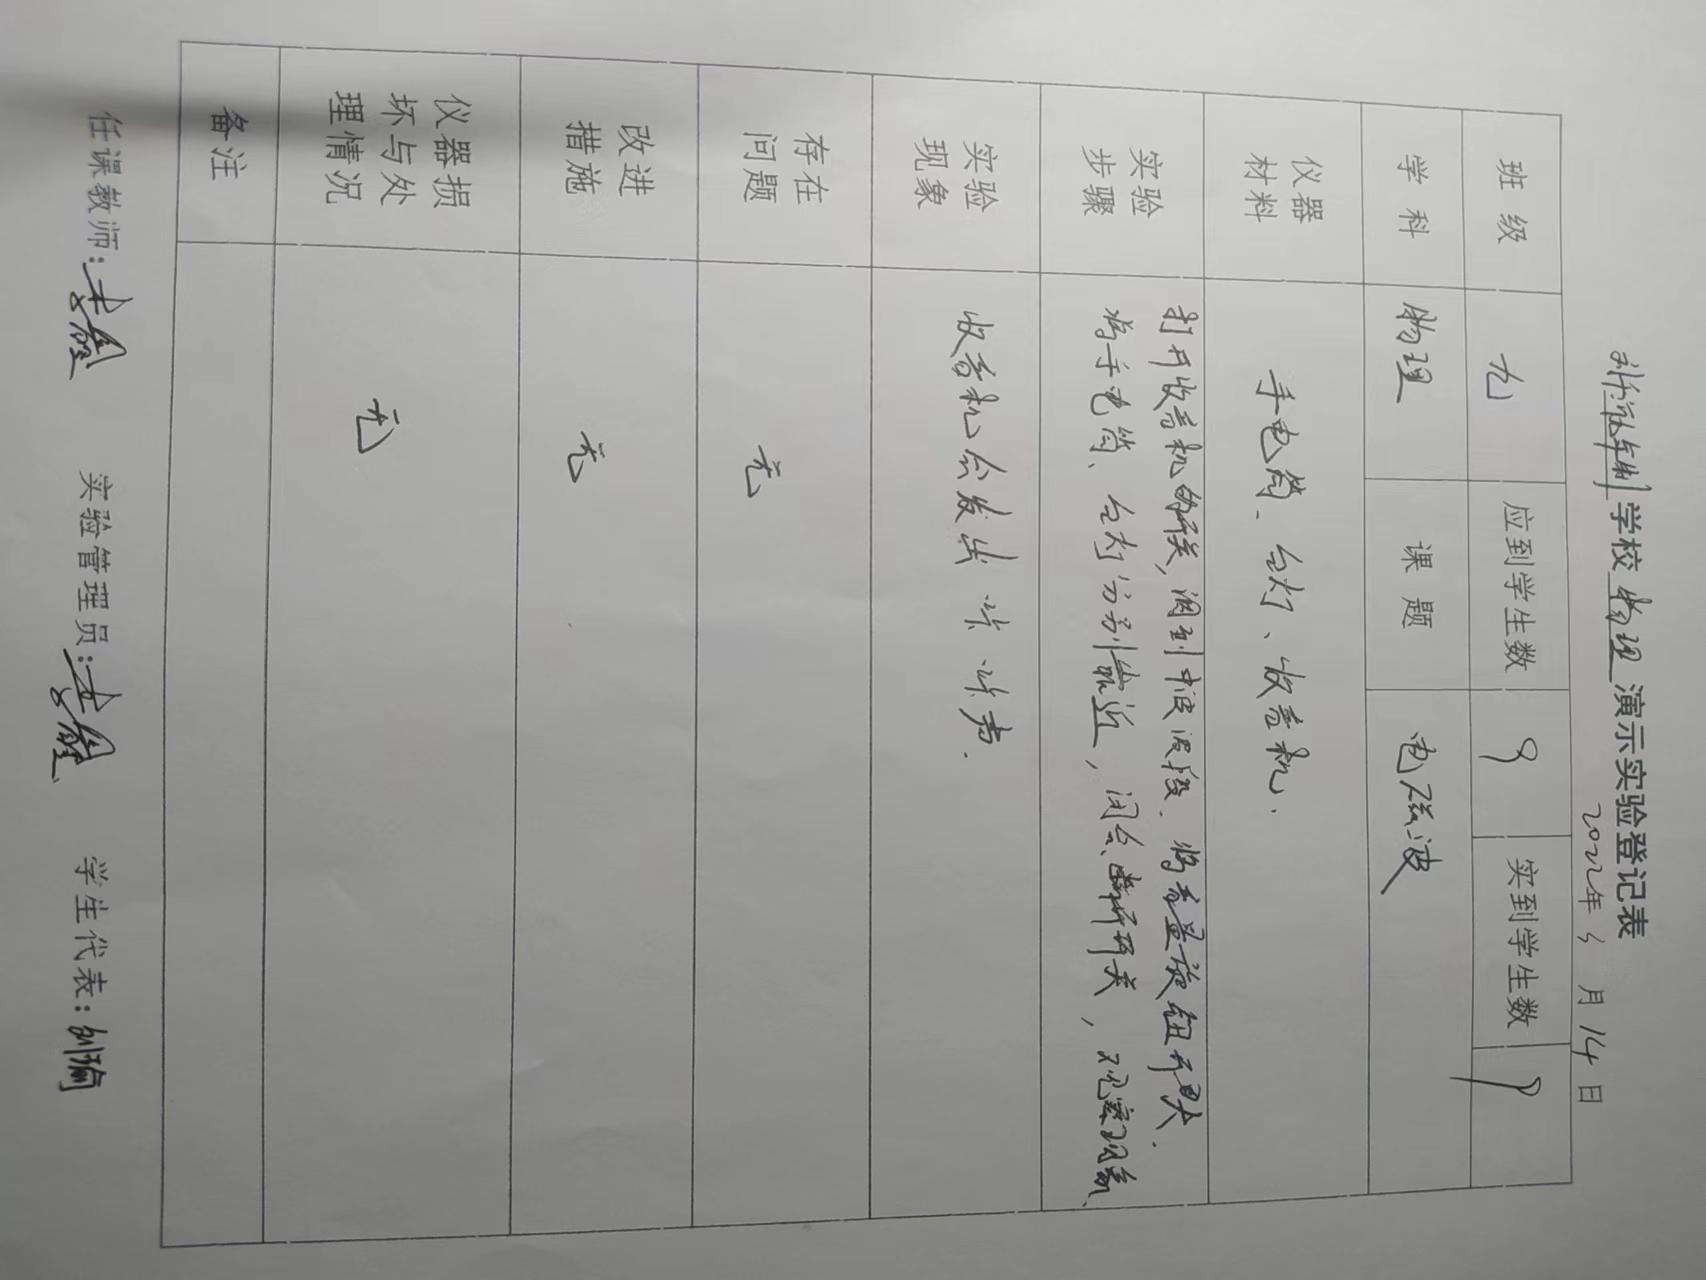 学校物理演示实验登记表
2022年5月14日
班级 九 应到学生数 9 实到学生数 9
学科 物理 课题 电磁波
仪器材料 手电筒、台灯、收音机.
实验步骤 打开收音机的开关,调到中波波段.将音量旋钮开最大.
将手电筒、台灯分别靠近,闭合、断开开关,观察现象、
实验现象 收音机会发出咔咔声.
存在问题 无
改进措施 无
仪器损坏与处理情况 无
备注
任课教师: 实验管理员: 学生代表:刘瑜